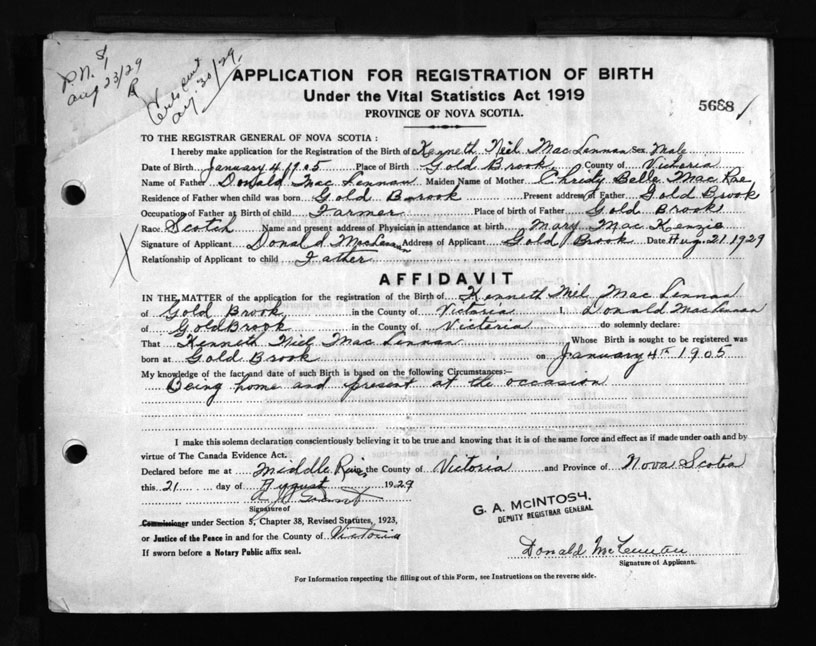 P.N. $1
Aug 23/29
R
Cert sent
Aug 30/29
APPLICATION FOR REGISTRATION OF BIRTH
Under the Vital Statistics Act 1919
PROVINCE OF NOVA SCOTIA.
5688
TO THE REGISTRAR GENERAL OF NOVA SCOTIA :
I hereby make application for the Registration of the Birth of Kenneth Niel MacLennan Sex Male
Date of Birth January 4 1905 Place of Birth Gold Brook County of Victoria
Name of Father Donald MacLennan Maiden Name of Mother Christy Belle MacRae
Residence of Father when child was born Gold Brook Present address of Father Gold Brook
Occupation of Father at Birth of child Farmer Place of birth of Father Gold Brook
Race Scotch Name and present address of Physician in attendance at birth Mary MacKenzie
Signature of Applicant Donald MacLennan Address of Applicant Gold Brook Date Aug. 21. 1929
Relationship of Applicant to child Father
AFFIDAVIT
IN THE MATTER of the application for the registration of the Birth of Kenneth Niel MacLennan
of Gold Brook in the County of Victoria I, Donald MacLennan
of Gold Brook in the County of Victoria do solemnly declare:
That Kenneth Niel MacLennan Whose Birth is sought to be registered was
born at Gold Brook on January 4th 1905
My knowledge of the fact and date of such Birth is based on the following Circumstances:—
Being home and present at the occasion
I make this solemn declaration conscientiously believing it to be true and knowing that it is of the same force and effect as if made under oath and by
virtue of The Canada Evidence Act.
Declared before me at Middle River the County of Victoria and Province of Nova Scotia
this 21 day of August 1929
Signature of
G. A. McINTOSH,
DEPUTY REGISTRAR GENERAL
Commissioner under Section 5, Chapter 38, Revised Statutes, 1923,
or Justice of the Peace in and for the County of Victoria
If sworn before a Notary Public affix seal.
Donald McLennan
Signature of Applicant.
For Information respecting the filling out of this Form, see Instructions on the reverse side.